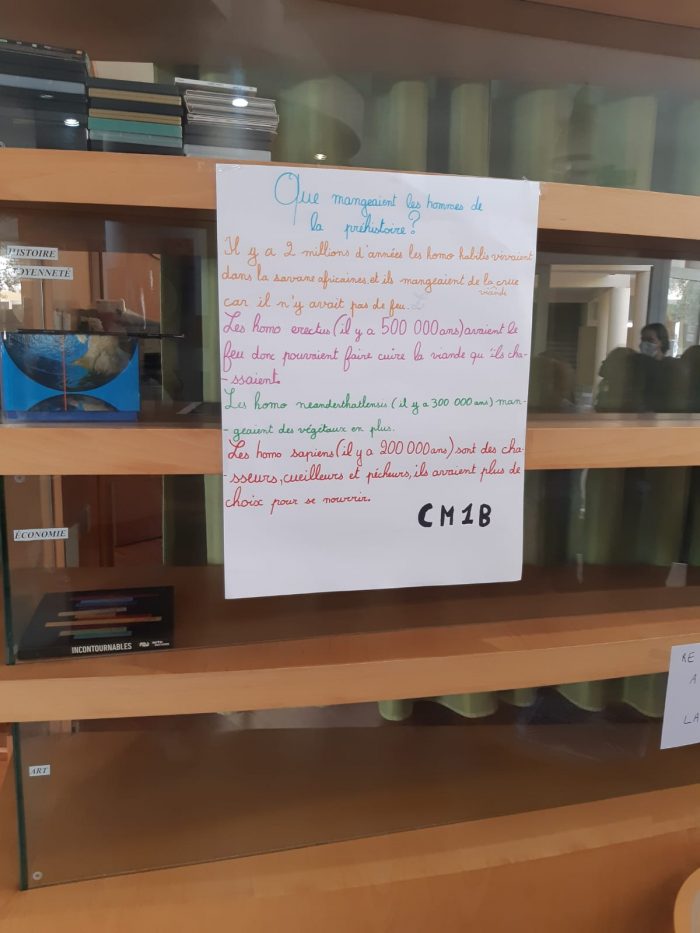 Que mangeaient les hommes de
la préhistoire?
Il y a 2 millions d'années les homo habilis vivaient
dans la savane africaines, et ils mangeaient de la crue
viande
car il n'y avait pas de feu.
Les homo erectus (il y a 500 000 ans) avaient le
feu donc pouvaient faire cuire la viande qu'ils cha-
-ssaient.
Les homo neanderthatlensis (il y a 300 000 ans) man-
-geaient des végétaux en plus.
Les homo sapiens (il y a 200 000 ans) sont des cha-
sseurs, cueilleurs et pêcheurs, ils avaient plus de
choix pour se nourrir.
CM1B
HISTOIRE
CITOYENNETÉ
ÉCONOMIE
INCONTOURNABLES
ART
RE
A
LA